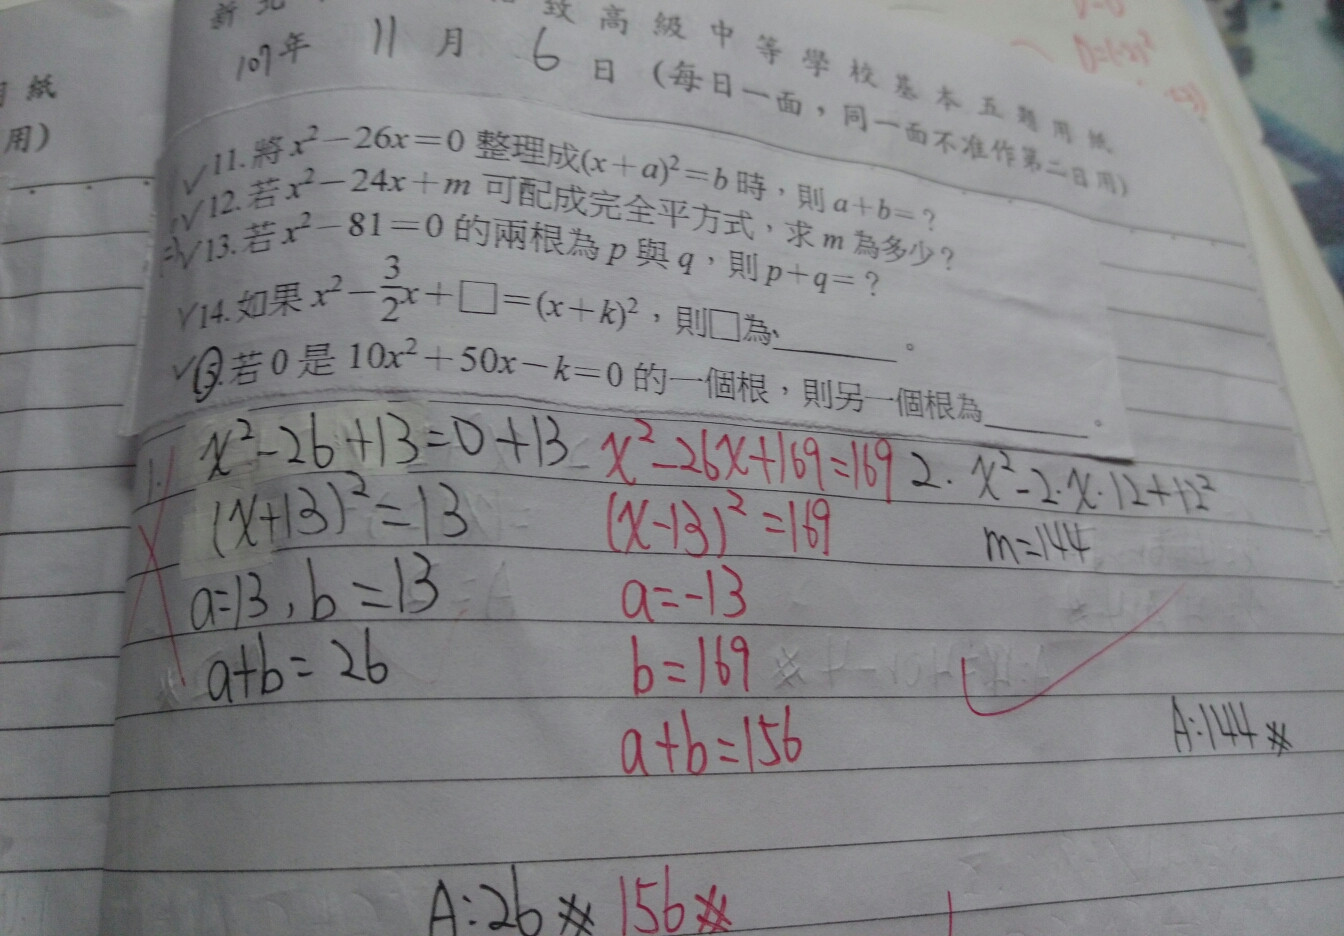 紙
用)
新北
致高級中等學校基本五題用紙
107年 11月 6日 (每日一面，同一面不准作第二日用)
✓11. 將 x²−26x=0 整理成(x+a)²=b 時，則 a+b=?
✓12. 若 x²−24x+m 可配成完全平方式，求 m 為多少?
✓13. 若 x²−81=0 的兩根為 p 與 q，則 p+q=?
✓14. 如果 x²−3/2x+□=(x+k)²，則□為、______。
若 0 是 10x²+50x−k=0 的一個根，則另一個根為______。
1. x²-26+13=0+13
(x+13)²=13
a=13, b=13
a+b=26
x²-26x+169=169
(x-13)²=169
a=-13
b=169
a+b=156
2. x²-2·x·12+12²
m=144
A:144※
A:26※ 156※